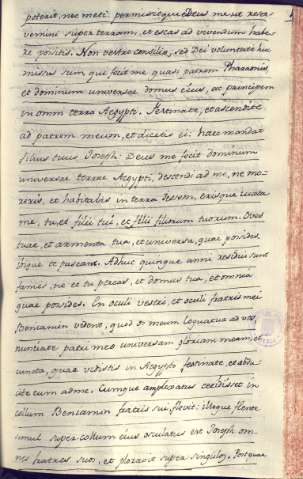 poterit, nec meti permisitque Deus me ut reser
vemini super terram, et escas ad vivendum habe
re positis. Non vestro consilio, sed Dei voluntate huc
missus sum, qui fecit me quasi patrem Pharaonis,
et dominum universae domus eius, ac principem
in omni terra Aegypti. Festinate, et ascendite
ad patrem meum, et dicetis ei: haec mandat
filius tuus Joseph: Deus me fecit dominum
universae terrae Aegypti, descende ad me, ne mo
reris, et habitabis in terra Gessen, erisque iuxta
me, tu, et filii tui, et filii filiorum tuorum. Oves
tuae, et armenta tua, et universa, quae possides.
Ibique te pascam. Adhuc quinque anni residui sunt
famis, ne et tu pereas, et domus tua, et omnia
quae possides. En oculi vestri, et oculi fratris mei
Beniamin vident, quod os meum loquatur ad vos,
nuntiate patri meo universam gloriam meam, et
cuncta, quae vidistis in Aegypto festinate, et addu
cite eum ad me. Cumque amplexatus cecidisset in
collum Beniamin fratris sui, flevit: illoque flente
simul super collum eius osculatus est Joseph om
nes fratres suos, et ploravit super singulos. Post quae